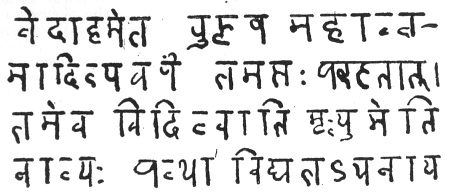 वेदाहमेत पुरुष महान्त-
मादित्यवर्णं तमसः परस्तात्।
तमेव विदित्वाति मृत्युमेति
नान्यः पन्था विद्यतेऽयनाय